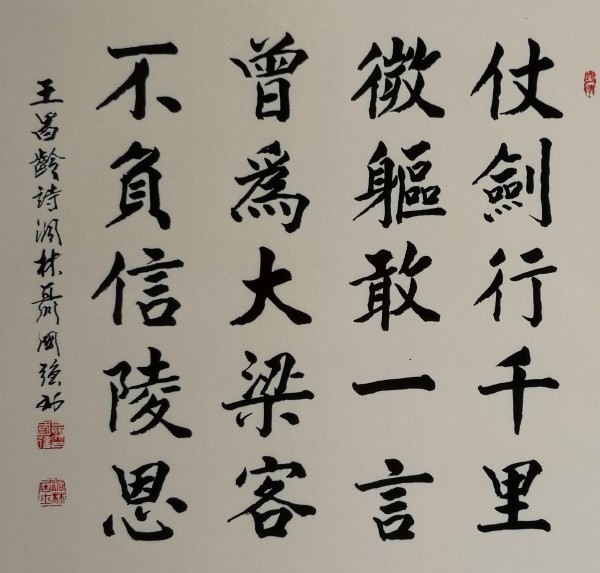 仗劍行千里
微軀敢一言
曾爲大梁客
不負信陵恩
王昌齡詩涧林聶國強书